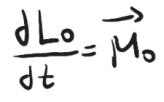 dL₀/dt = M⃗₀